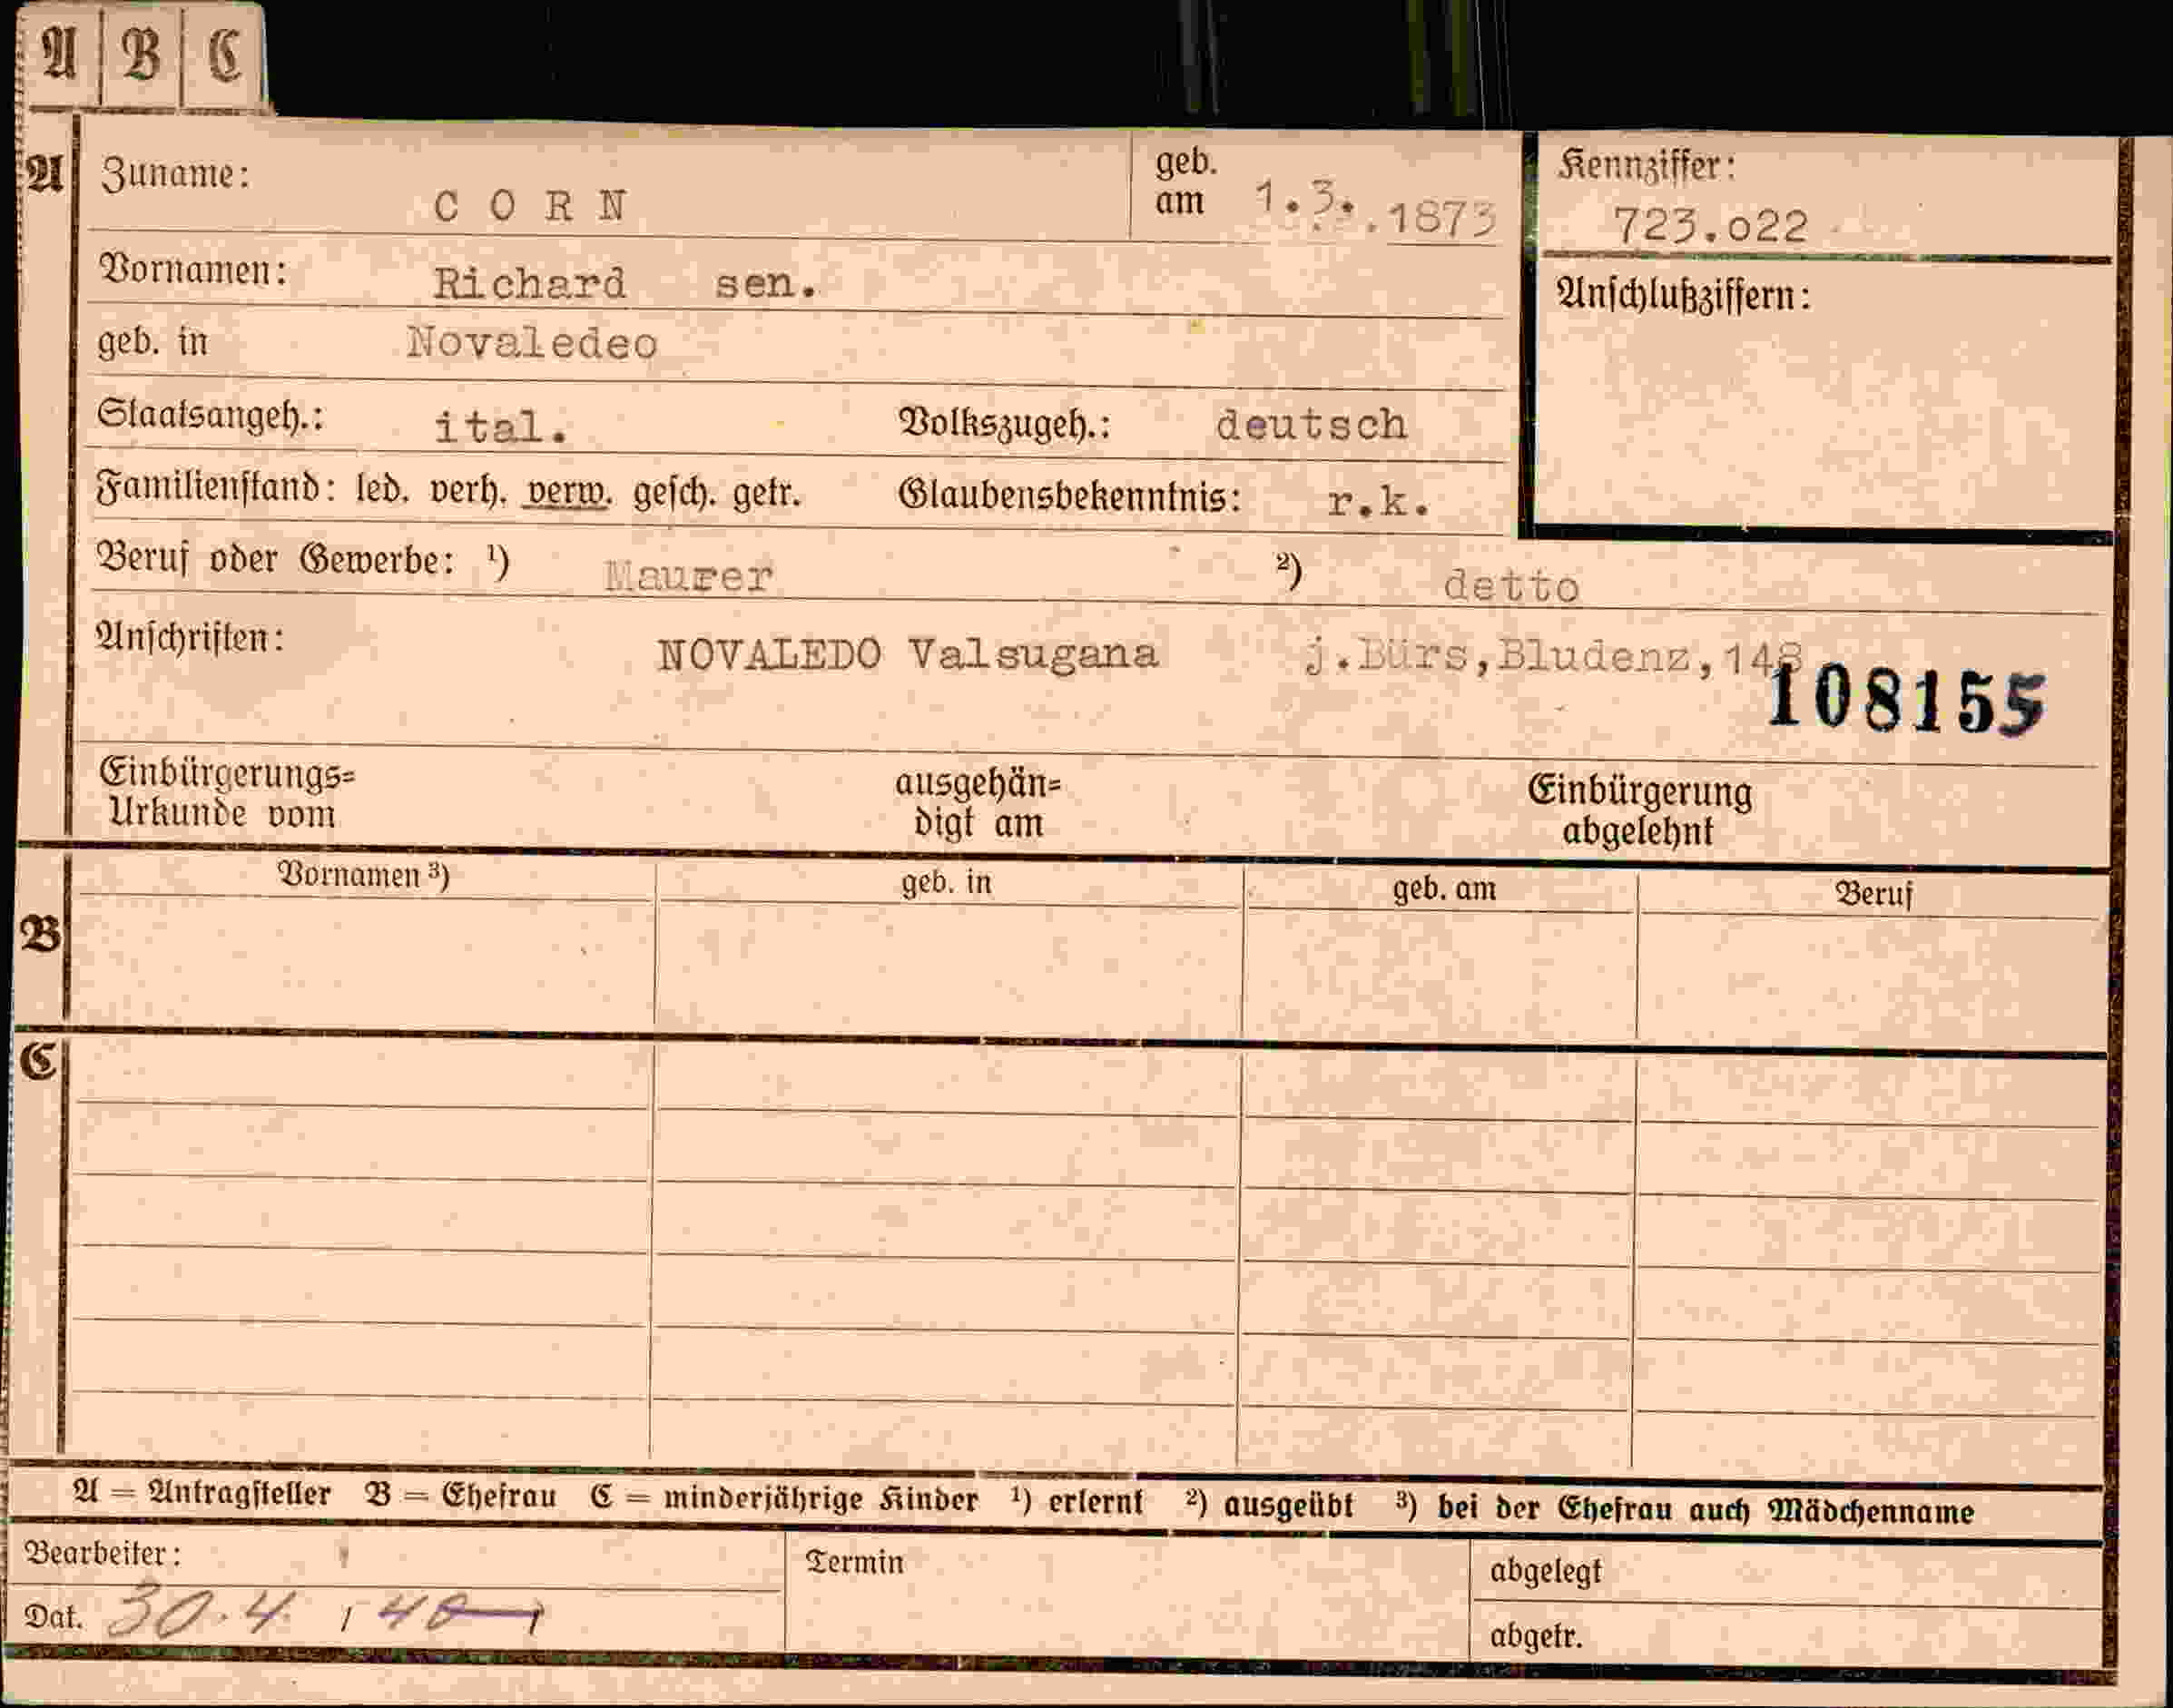 A B C
A Zuname: CORN geb. am 1.3..1873 Kennziffer: 723.o22
Vornamen: Richard sen. Anschlußziffern:
geb. in Novaledeo
Staatsangeh.: ital. Volkszugeh.: deutsch
Familienstand: led. verh. verw. gesch. getr. Glaubensbekenntnis: r.k.
Beruf oder Gewerbe: ¹) Maurer ²) detto
Anschriften: NOVALEDO Valsugana j.Bürs,Bludenz,148
108155
Einbürgerungs= ausgehän= Einbürgerung
Urkunde vom digt am abgelehnt
Vornamen ³) geb. in geb. am Beruf
B
C
A = Antragsteller B = Ehefrau C = minderjährige Kinder ¹) erlernt ²) ausgeübt ³) bei der Ehefrau auch Mädchenname
Bearbeiter: Termin abgelegt
Dat. 30.4. 40 abgetr.